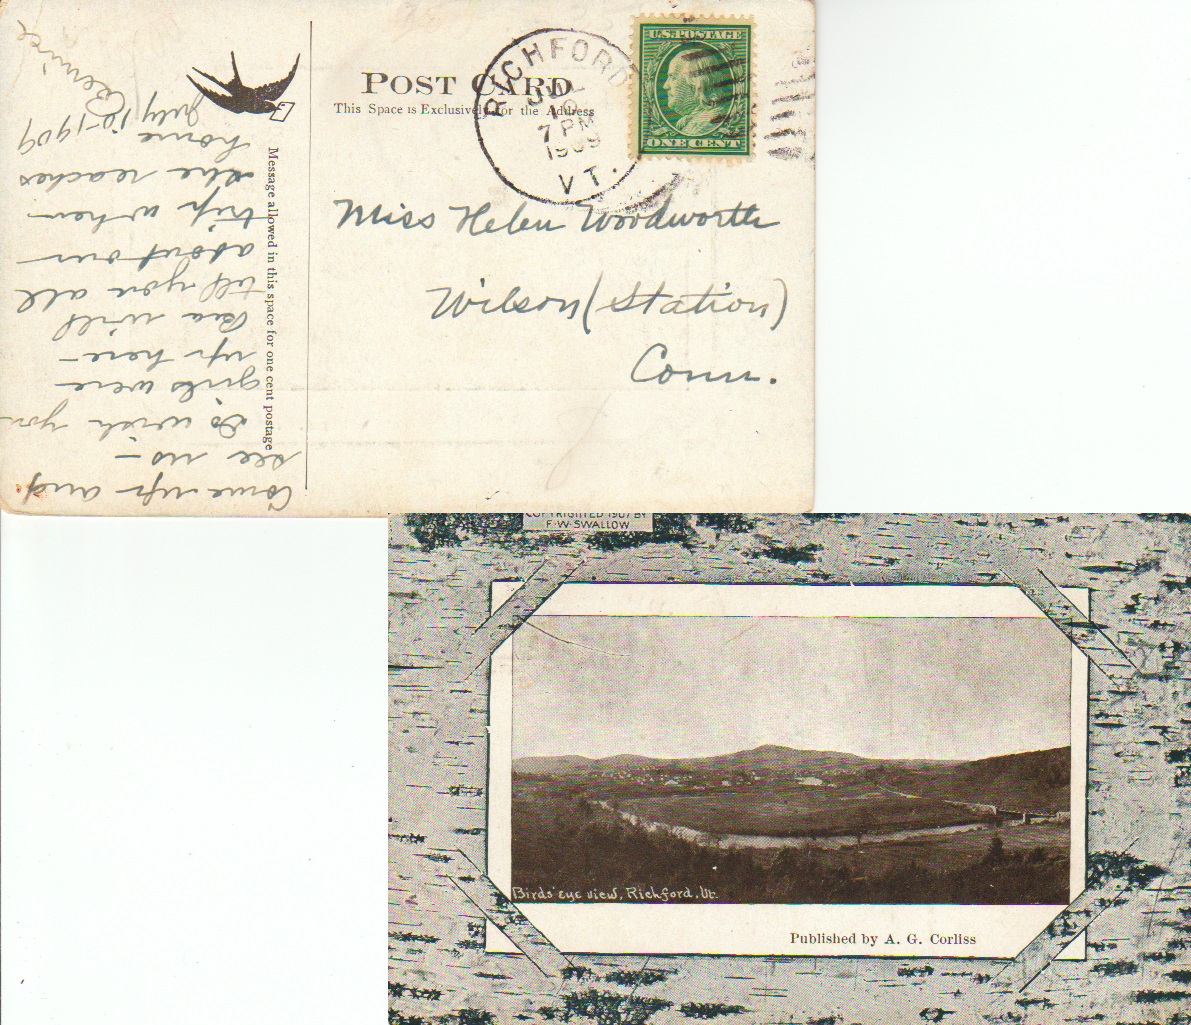 POST CARD
This Space is Exclusively for the Address
RICHFORD
JUL
10
7 PM
1909
VT.
U.S. POSTAGE
ONE CENT
Message allowed in this space for one cent postage
Miss Helen Woodworth
Wilson (Station)
Conn.
Come up and
see us —
So wish you
girls were
up here —
Bea will
tell you all
about our
trip when
she reaches
home
July 10-1909
Bernice
COPYRIGHTED 1907 BY
F. W. SWALLOW
Birds' eye view, Richford, Vt.
Published by A. G. Corliss